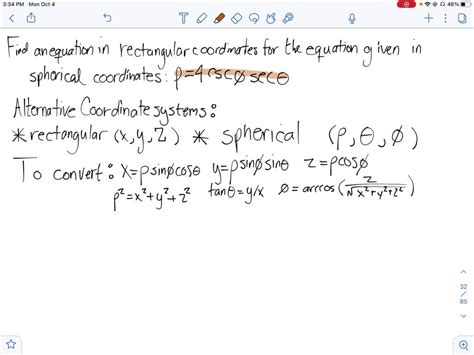 3:34 PM Mon Oct 4
46%
Find an equation in rectangular coordinates for the equation given in
spherical coordinates: ρ=4cscφsecθ
Alternative Coordinate systems:
* rectangular (x,y,z) * spherical (ρ,θ,φ)
To convert: x=ρsinφcosθ y=ρsinφsinθ z=ρcosφ
ρ²=x²+y²+z² tanθ=y/x φ=arccos(z/√x²+y²+z²)
32
/
85